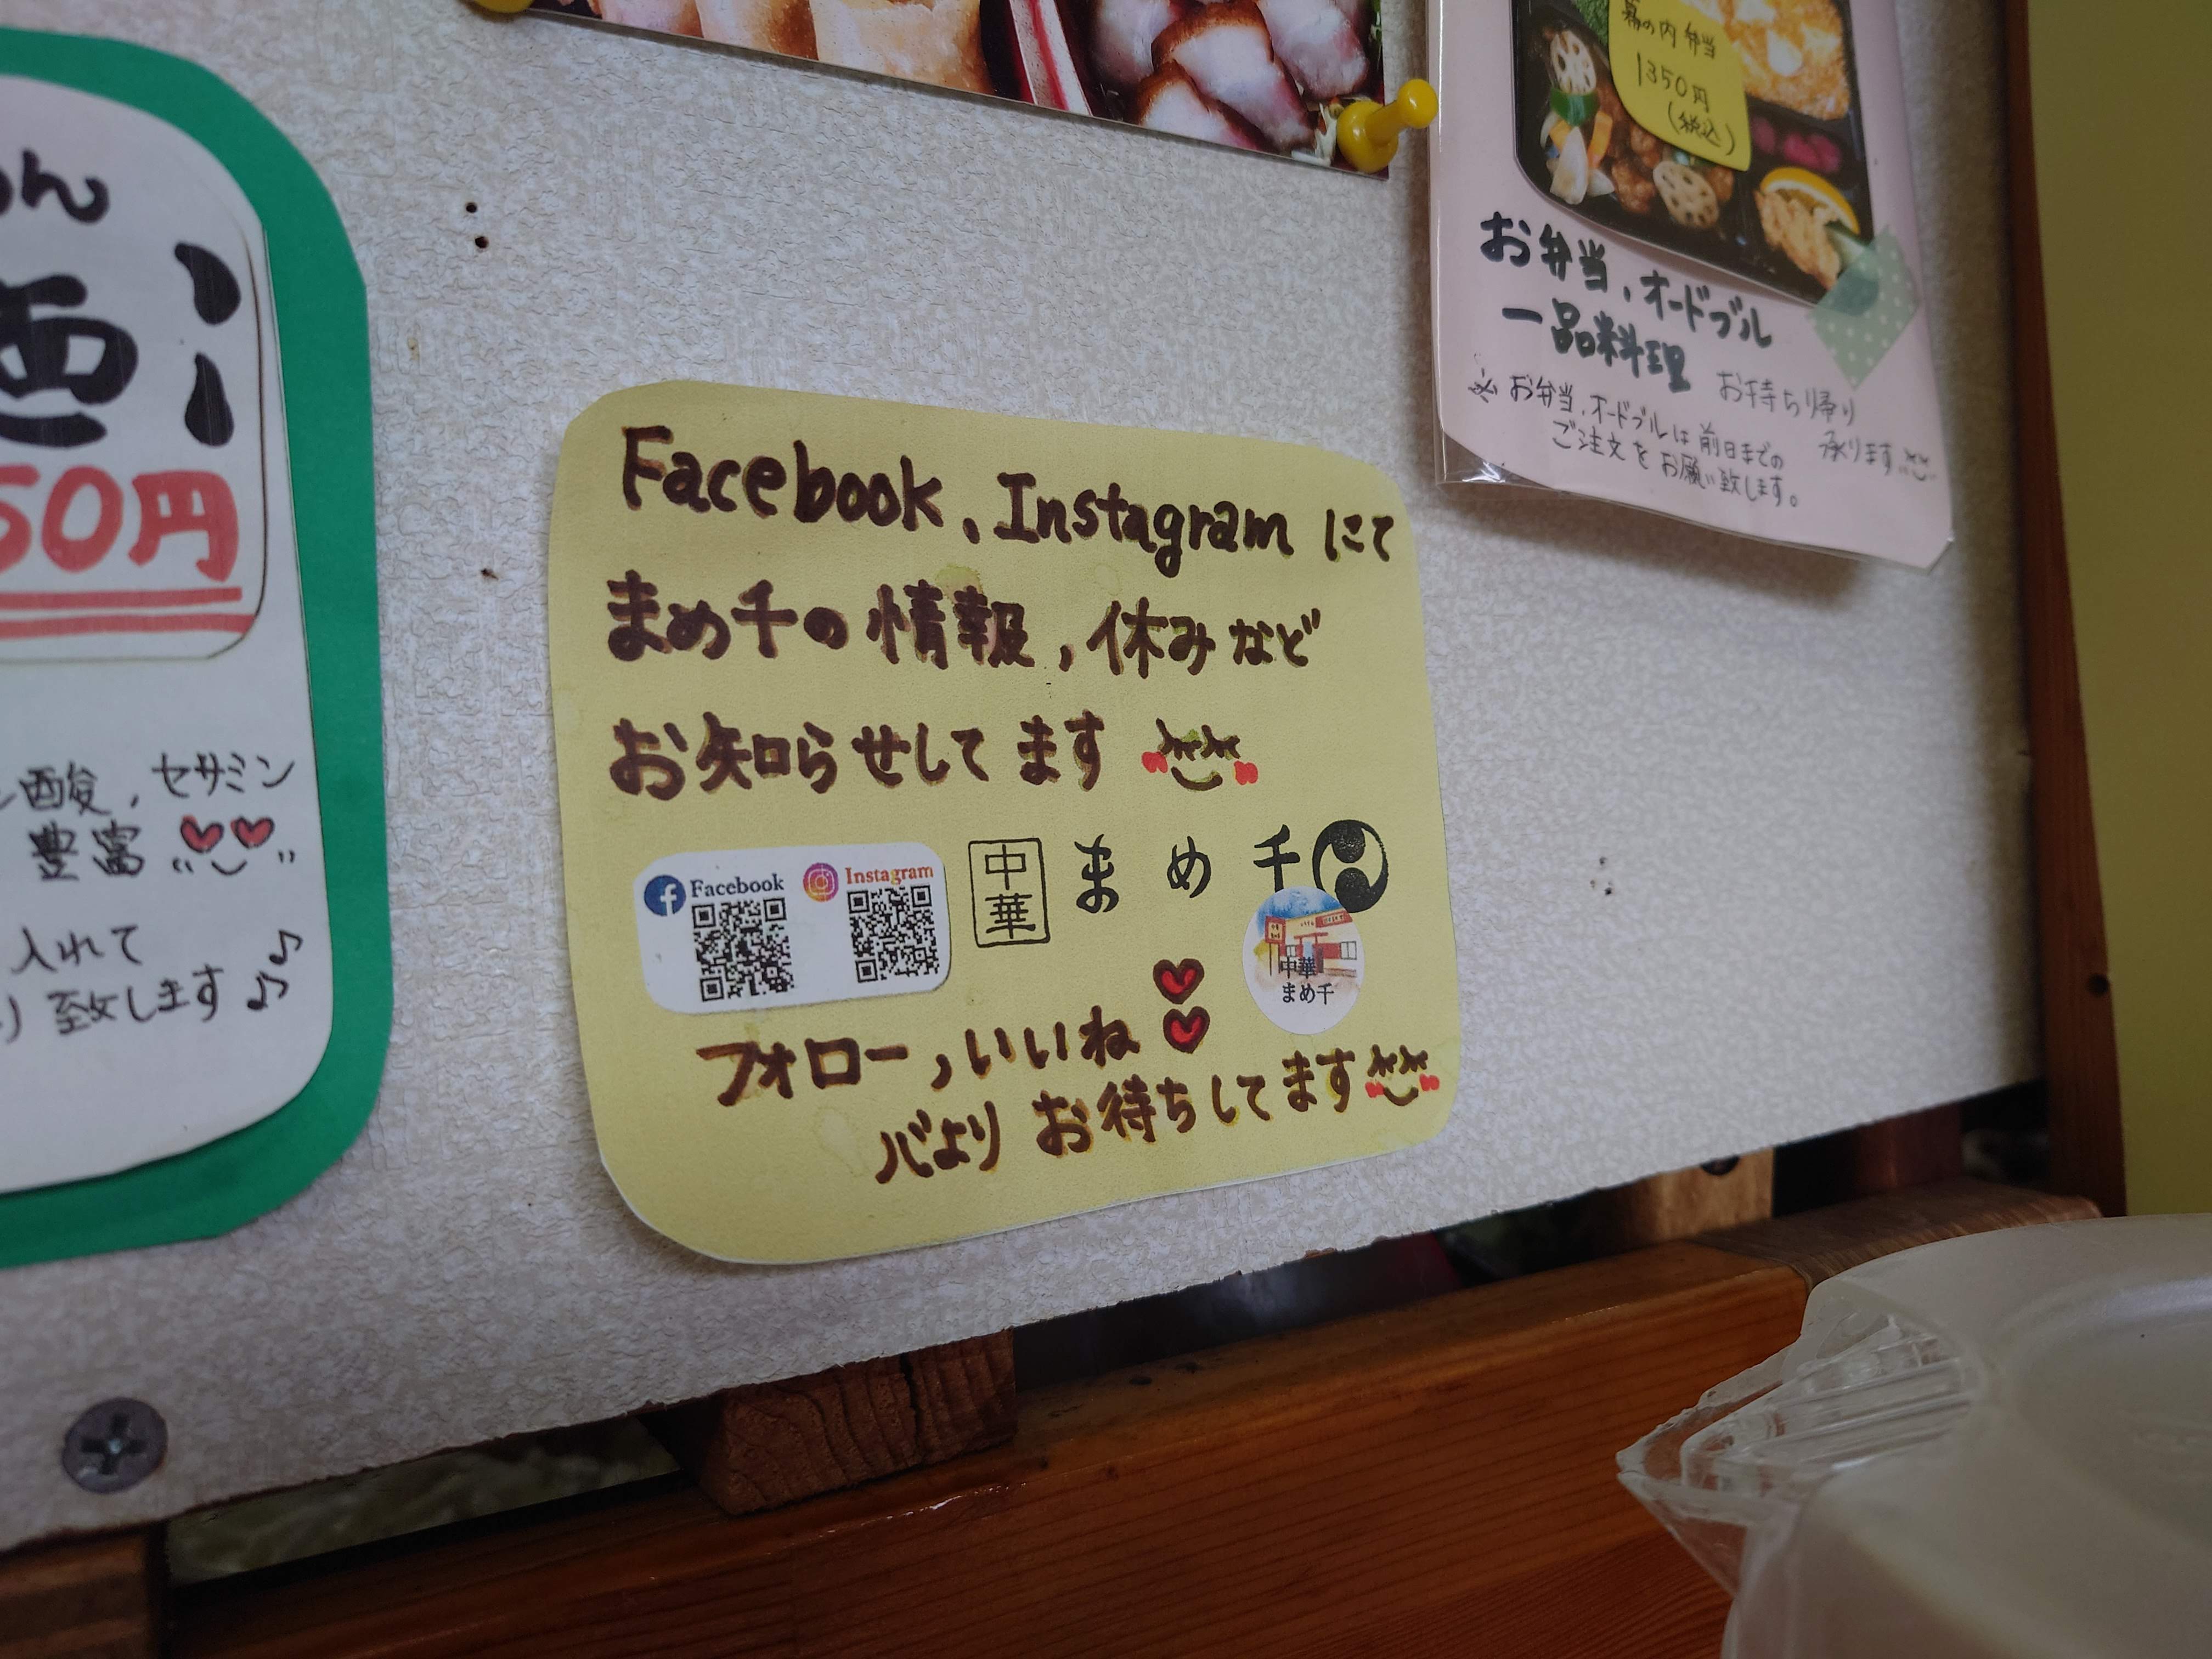 めん
50円
酸、セサミン
豊富
入れて
致します
Facebook、Instagram にて
まめ千の情報、休みなど
お知らせしてます
Facebook
Instagram
中華
まめ千
中華
まめ千
フォロー、いいね
心よりお待ちしてます
幕の内弁当
1350円
(税込)
お弁当、オードブル
一品料理
お持ち帰り
承ります
※お弁当、オードブルは前日までの
ご注文をお願い致します。